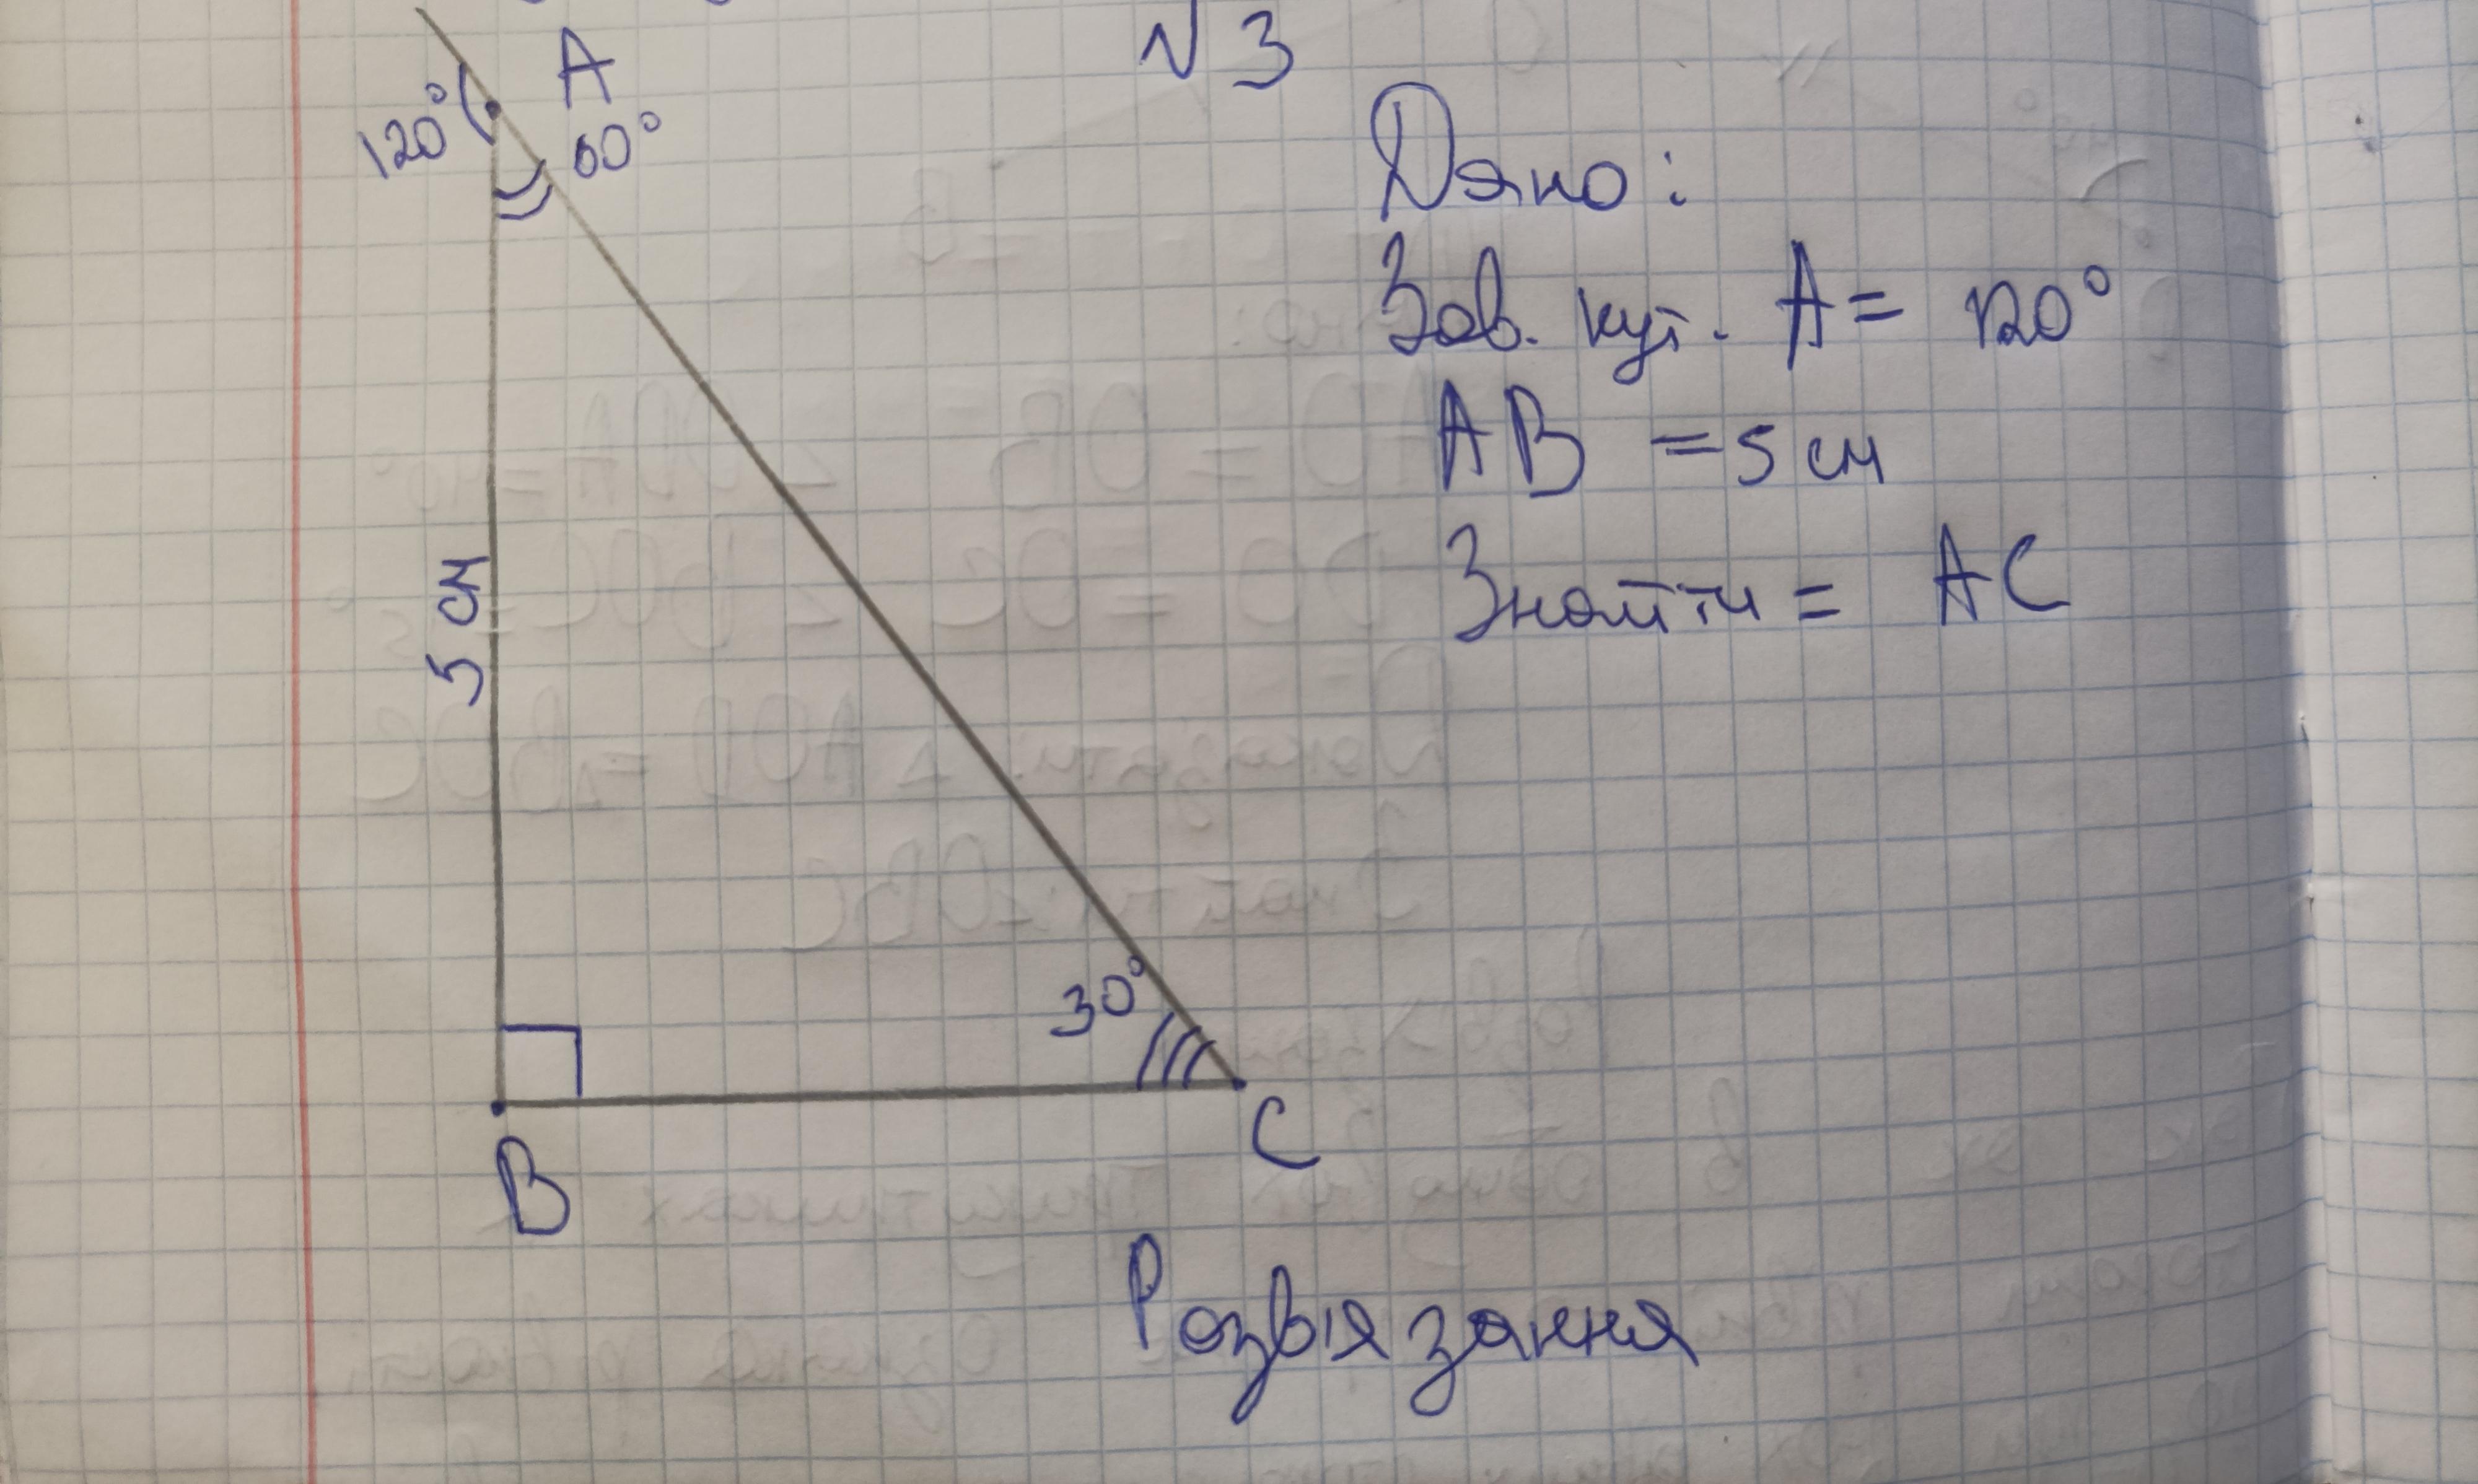 № 3
A
120°
60°
Дано:
Зов. кут. A = 120°
AB = 5 см
Знайти = AC
5 см
30°
B
C
Розвіязання